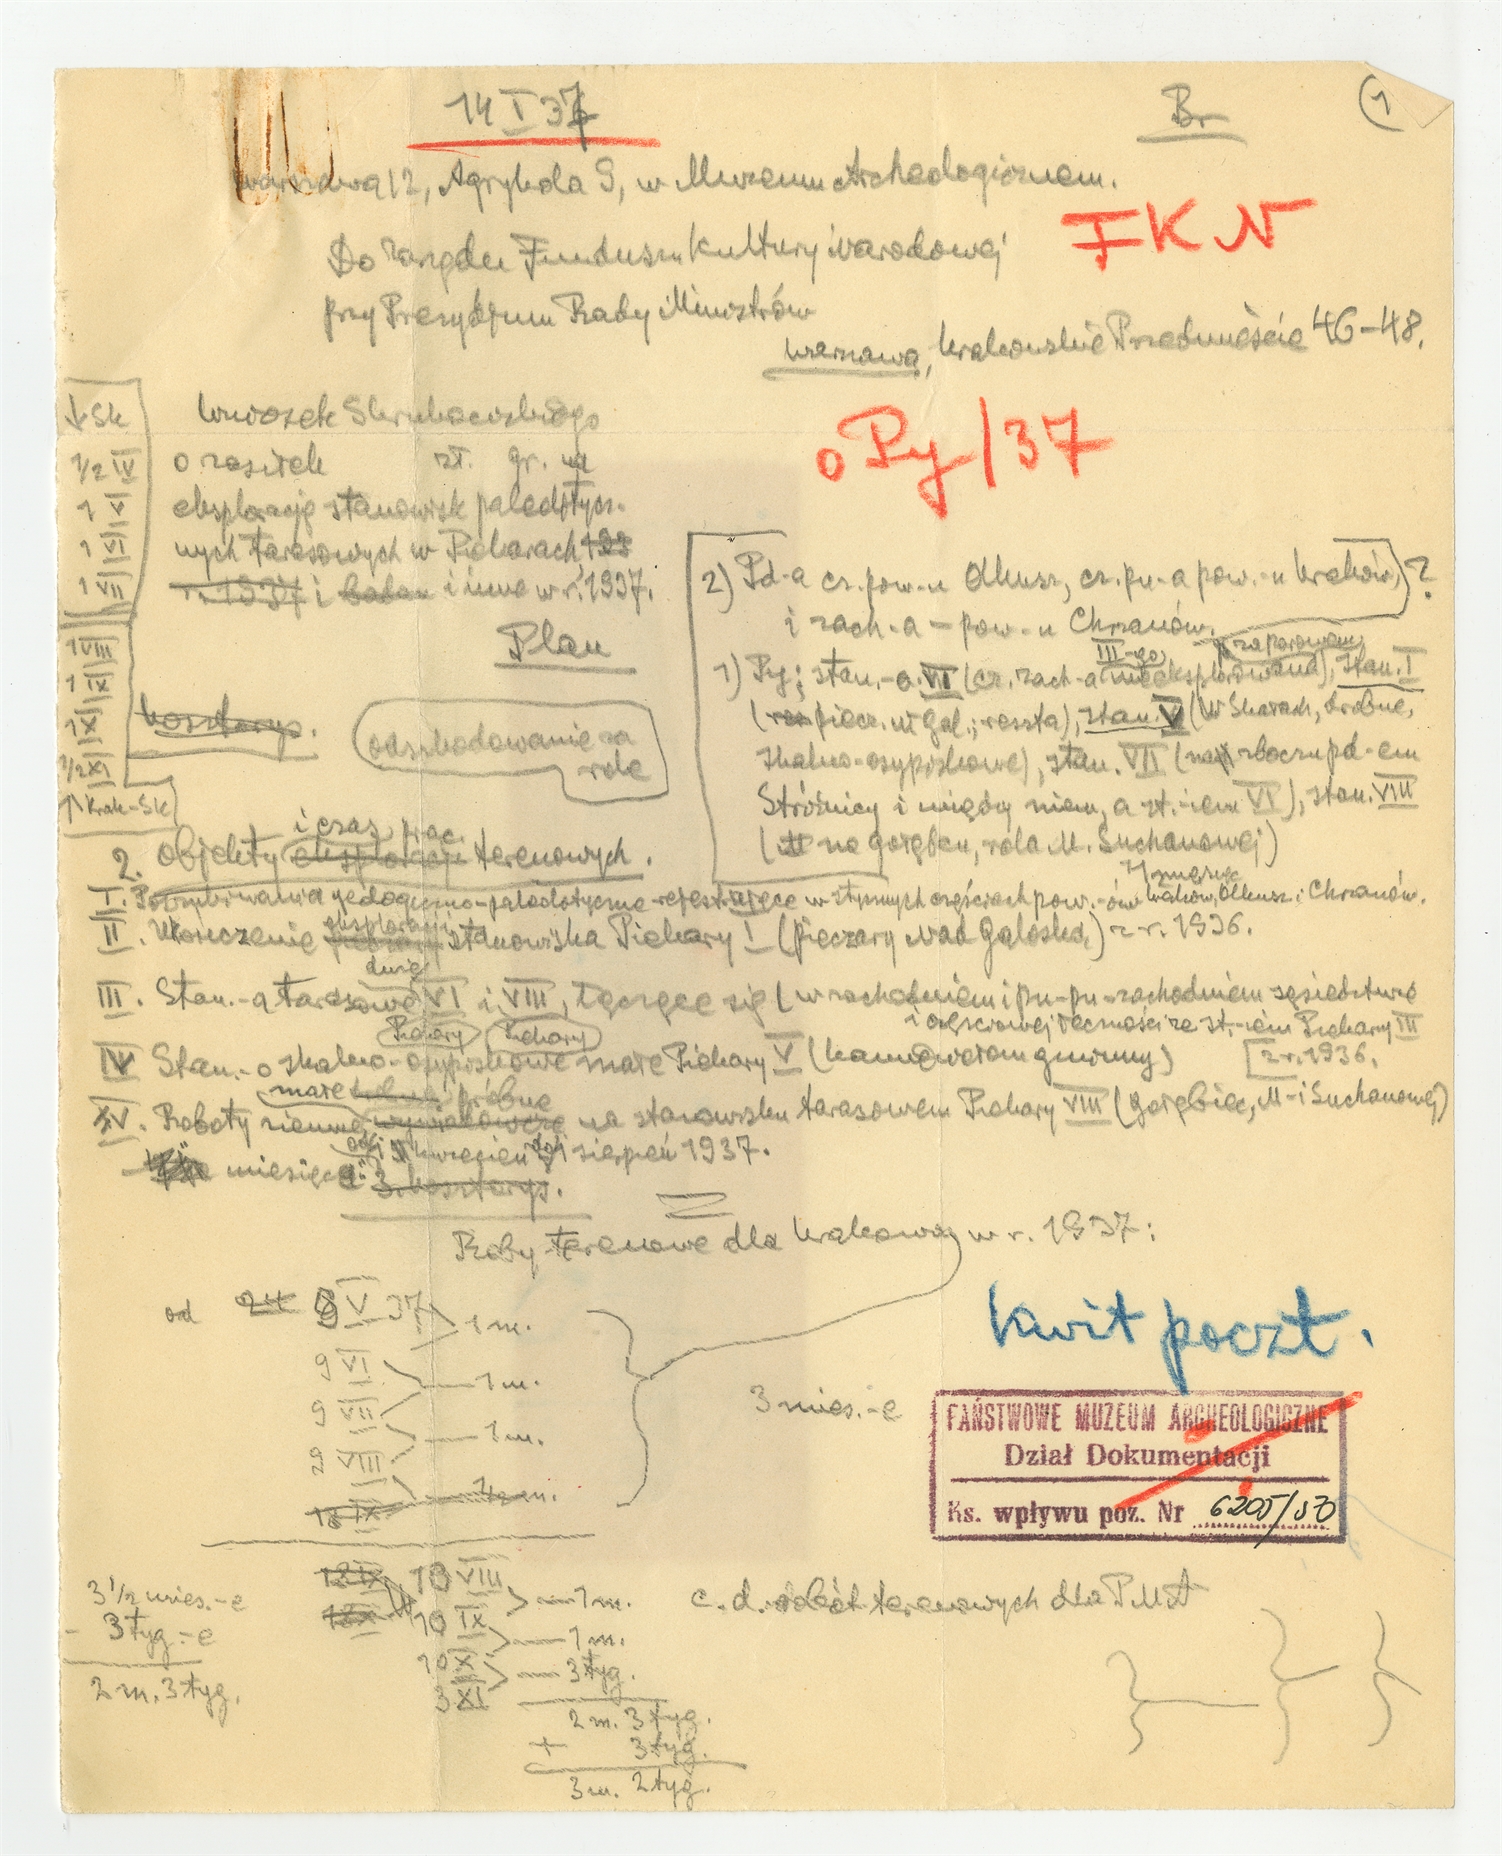 14 I 37
Br
1
Warszawa 12, Agrykola 9, w Muzeum Archeologicznem.
F K N
Do Zarządu Funduszu Kultury Narodowej
przy Prezydjum Rady Ministrów
Warszawa, Krakowskie Przedmieście 46-48.
o Py/37
↓ Sk
1/2 IV
1 V
1 VI
1 VII
1 VIII
1 IX
1 X
1/2 XI
↑ Krak-Sk
Wniosek Skrukowskiego
o zasiłek zł. gr. na
eksplorację stanowisk paleolitycz-
nych tarasowych w Piekarach, 193
r. 1937 i i inne w r. 1937.
Plan
kosztorys.
odszkodowanie za
rolę
2) Pd-a cz. pow-u Olkusz, cz. pn-a pow.-u Kraków, ?
i zach-a - pow-u Chrzanów.
1) Py; stan.-a VI (cz. zach-a III-go nieeksplorowana), stan. I
(piecz. n/Gal.; reszta), stan. V (W Skałach, drobne,
skalno-osypiskowe), stan. VII (na zboczu pd-em
Stróżnicy i między niem, a st.-iem VI), stan. VIII
(na gołębcu, rola M. Suchanowej)
2. Objekty i czas prac terenowych.
I. Poszukiwania geologiczno-paleolityczne-rejestrujące w stycznych częściach pow.-ów Kraków, Olkusz i Chrzanów.
II. Ukończenie eksploracji stanowiska Piekary I (pieczary Nad Galoską) z r. 1936.
III. Stan.-a tarasowe dwie VI i VIII, łączące się (w zachodniem i pn-pn-zachodniem sąsiedztwie
i częściowej łączności ze st.-iem Piekary III
z r. 1936.
Piekary Piekary
IV Stan.-o skalno-osypiskowe małe Piekary V (kamieniołom gminny)
V. Roboty ziemne małe próbne na stanowisku tarasowem Piekary VIII (gołębiec, M-i Suchanowej)
miesiące: od kwiecień do sierpień 1937.
3. kosztorys.
Roboty terenowe dla Krakowa w r. 1937:
od 9 V 37 1 m.
9 VI 1 m.
9 VII 1 m.
9 VIII 1/2 m.
15 IX
3 mies.-e
kwit poczt.
PAŃSTWOWE MUZEUM ARCHEOLOGICZNE
Dział Dokumentacji
Ks. wpływu poz. Nr 6205/50
10 VIII 1 m.
10 IX 1 m.
10 X 3 tyg.
3 XI
2 m. 3 tyg.
+ 3 tyg.
3 m. 2 tyg.
c. d. robót terenowych dla PMA
3 1/2 mies.-e
- 3 tyg.-e
2 m. 3 tyg.